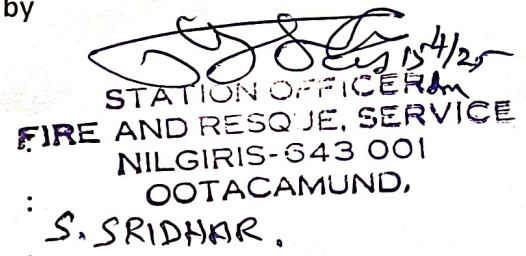 by
15/4/25
STATION OFFICER
FIRE AND RESQUE, SERVICE
NILGIRIS-643 001
OOTACAMUND,
:
S. SRIDHAR.